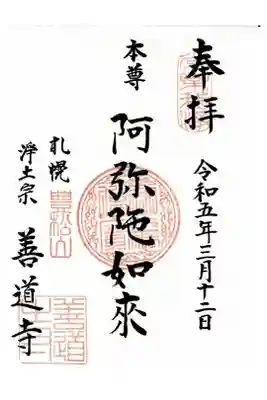 奉拝
令和五年三月十二日
本尊
阿弥陀如来
札幌
浄土宗
善道寺